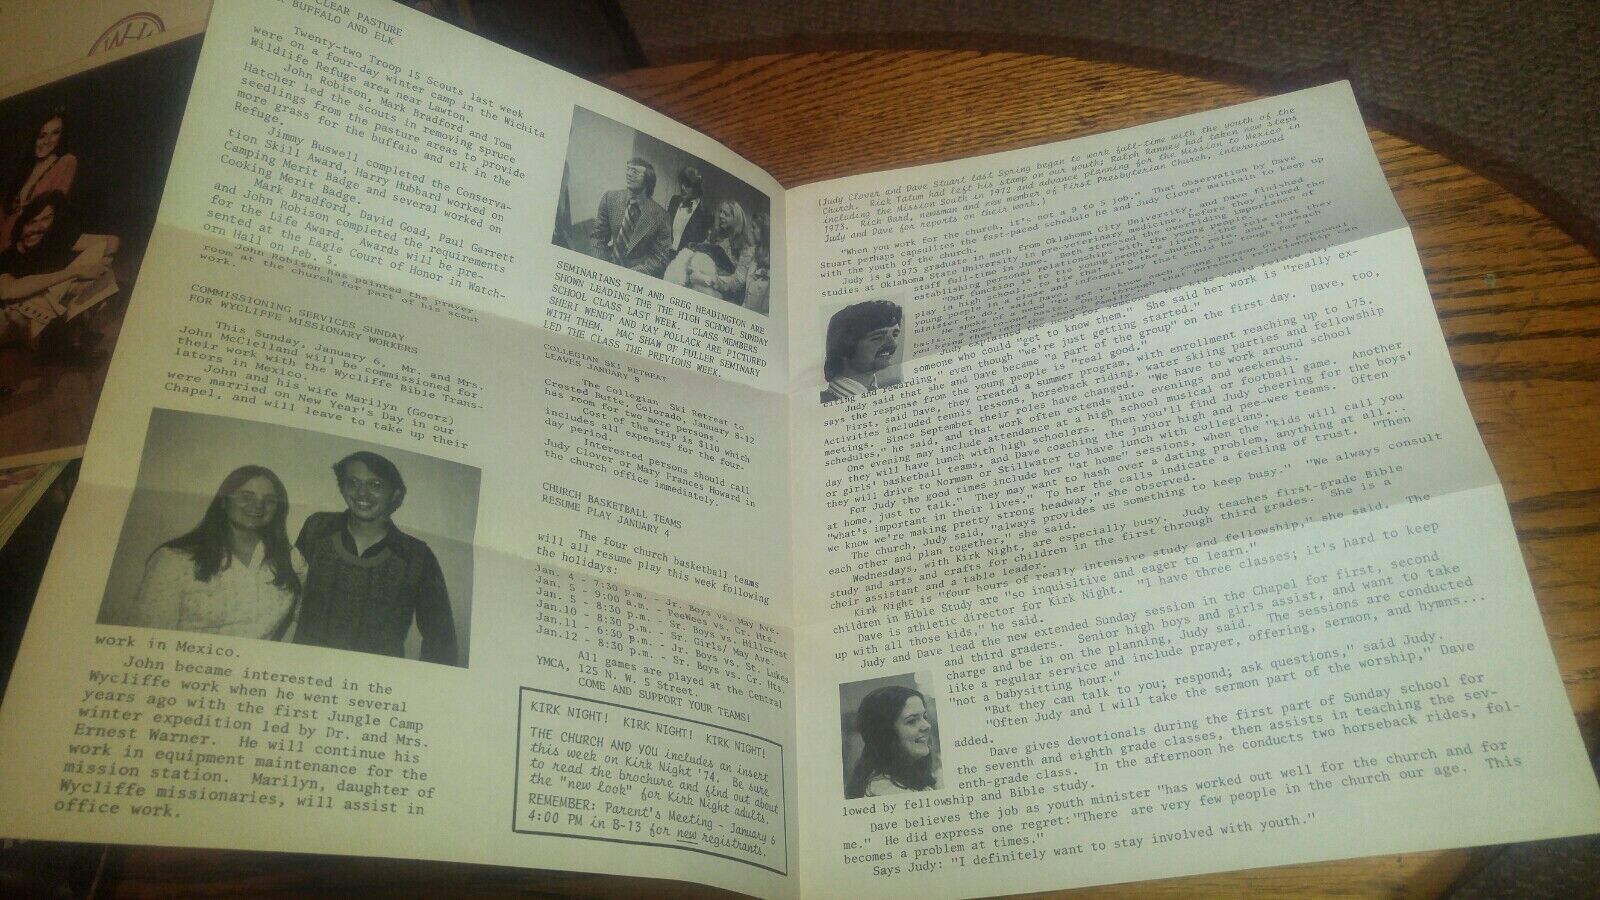 CLEAR PASTURE
BUFFALO AND ELK
Twenty-two Troop 15 Scouts last week
were on a four-day winter camp in the Wichita
Wildlife Refuge area near Lawton.
John Robison, Mark Bradford and Tom
Hatcher led the scouts in removing spruce
seedlings from the pasture areas to provide
more grass for the buffalo and elk in the
Refuge.
Jimmy Buswell completed the Conserva-
tion Skill Award, Harry Hubbard worked on
Camping Merit Badge and several worked on
Cooking Merit Badge.
Mark Bradford, David Goad, Paul Garrett
and John Robison completed the requirements
for the Life Award. Awards will be pre-
sented at the Eagle Court of Honor in Watch-
orn Hall on Feb. 5.
John Robison has painted the prayer
room at the church for part of his scout
work.
COMMISSIONING SERVICES SUNDAY
FOR WYCLIFFE MISSIONARY WORKERS
This Sunday, January 6, Mr. and Mrs.
John McClelland will be commissioned for
their work with the Wycliffe Bible Trans-
lators in Mexico.
John and his wife Marilyn (Goerz)
were married on New Year's Day in our
Chapel, and will leave to take up their
work in Mexico.
John became interested in the
Wycliffe work when he went several
years ago with the first Jungle Camp
winter expedition led by Dr. and Mrs.
Ernest Warner. He will continue his
work in equipment maintenance for the
mission station. Marilyn, daughter of
Wycliffe missionaries, will assist in
office work.
SEMINARIANS TIM AND GREG HEADINGTON ARE
SHOWN LEADING THE THE HIGH SCHOOL SUNDAY
SCHOOL CLASS LAST WEEK. CLASS MEMBERS
SHERI WENDT AND KAY POLLACK ARE PICTURED
WITH THEM. MAC SHAW OF FULLER SEMINARY
LED THE CLASS THE PREVIOUS WEEK.
COLLEGIAN SKI RETREAT
LEAVES JANUARY 8
The Collegian Ski Retreat to
Crested Butte, Colorado, January 8-12
has room for two more persons.
Cost of the trip is $110 which
includes all expenses for the four-
day period.
Interested persons should call
Judy Clover or Mary Frances Howard in
the church office immediately.
CHURCH BASKETBALL TEAMS
RESUME PLAY JANUARY 4
The four church basketball teams
will all resume play this week following
the holidays:
Jan. 4 - 7:30 p.m. - Jr. Boys vs. May Ave.
Jan. 5 - 9:00 a.m. - PeeWees vs. Cr. Hts.
Jan. 5 - 8:30 p.m. - Sr. Boys vs. Hillcrest
Jan.10 - 8:30 p.m. - Sr. Girls/ May Ave.
Jan.11 - 6:30 p.m. - Jr. Boys vs. St. Lukes
Jan.12 - 8:30 p.m. - Sr. Boys vs. Cr. Hts.
All games are played at the Central
YMCA, 125 N. W. 5 Street.
COME AND SUPPORT YOUR TEAMS!
KIRK NIGHT! KIRK NIGHT! KIRK NIGHT!
THE CHURCH AND YOU includes an insert
this week on Kirk Night '74. Be sure
to read the brochure and find out about
the "new look" for Kirk Night adults.
REMEMBER: Parent's Meeting - January 6
4:00 PM in B-13 for new registrants.
(Judy Clover and Dave Stuart last Spring began to work full-time with the youth of the
Church. Rick Tatum had left his stamp on our youth; Ralph Ranney had taken new steps
including the Mission South in 1972 and advance planning for the Mission to Mexico in
1973. Rich Bard, newsman and new member of First Presbyterian Church, interviewed
Judy and Dave for reports on their work.)
"When you work for the church, it's not a 9 to 5 job." That observation by Dave
Stuart perhaps capsulizes the fast-paced schedule he and Judy Clover maintain to keep up
with the youth of the church.
Judy is a 1973 graduate in math from Oklahoma City University, and Dave finished
studies at Oklahoma State University in pre-veterinary medicine, before they joined the
staff full-time in June. Both stressed the overriding importance of
establishing personal relationships with the young people.
"Our function is to tie young people's lives
play in high school... into the church role, and to reach
young people in a close and informal way that could be tough for a
minister to do," he said.
He spoke of a need "to get to know each young person on a personal
basis, one-to-one.
Judy explained that
someone who could "get to know them." She said her work is "really ex-
citing and rewarding," even though "we're just getting started."
Judy said that she and Dave became "a part of the group" on the first day. Dave, too,
says the response from the young people is "real good."
First, said Dave, they created a summer program with enrollment reaching up to 175.
Activities included tennis lessons, horseback riding, water skiing parties and fellowship
meetings. Since September their roles have changed. "We have to work around school
schedules," he said, and that work often extends into evenings and weekends.
One evening may include attendance at a high school musical or football game. Another
day they will have lunch with high schoolers. Then you'll find Judy cheering for the boys'
or girls' basketball teams, and Dave coaching the junior high and pee-wee teams. Often
they will drive to Norman or Stillwater to have lunch with collegians.
For Judy the good times include her "at home" sessions, when the "kids will call you
at home, just to talk." They may want to hash over a dating problem, anything at all...
"what's important in their lives." To her the calls indicate a feeling of trust. "Then
we know we're making pretty strong headway," she observed.
The church, Judy said, "always provides us something to keep busy." "We always consult
each other and plan together," she said.
Wednesdays, with Kirk Night, are especially busy. Judy teaches first-grade Bible
study and arts and crafts for children in the first through third grades. She is a
choir assistant and a table leader.
Kirk Night is "four hours of really intensive study and fellowship," she said. The
children in Bible Study are "so inquisitive and eager to learn."
Dave is athletic director for Kirk Night. "I have three classes; it's hard to keep
up with all those kids," he said.
Judy and Dave lead the new extended Sunday session in the Chapel for first, second
and third graders. Senior high boys and girls assist, and I want to take
charge and be in on the planning, Judy said. The sessions are conducted
like a regular service and include prayer, offering, sermon, and hymns...
"not a babysitting hour."
"But they can talk to you; respond; ask questions," said Judy.
"Often Judy and I will take the sermon part of the worship," Dave
added.
Dave gives devotionals during the first part of Sunday school for
the seventh and eighth grade classes, then assists in teaching the sev-
enth-grade class. In the afternoon he conducts two horseback rides, fol-
lowed by fellowship and Bible study.
Dave believes the job as youth minister "has worked out well for the church and for
me." He did express one regret:"There are very few people in the church our age. This
becomes a problem at times."
Says Judy: "I definitely want to stay involved with youth."